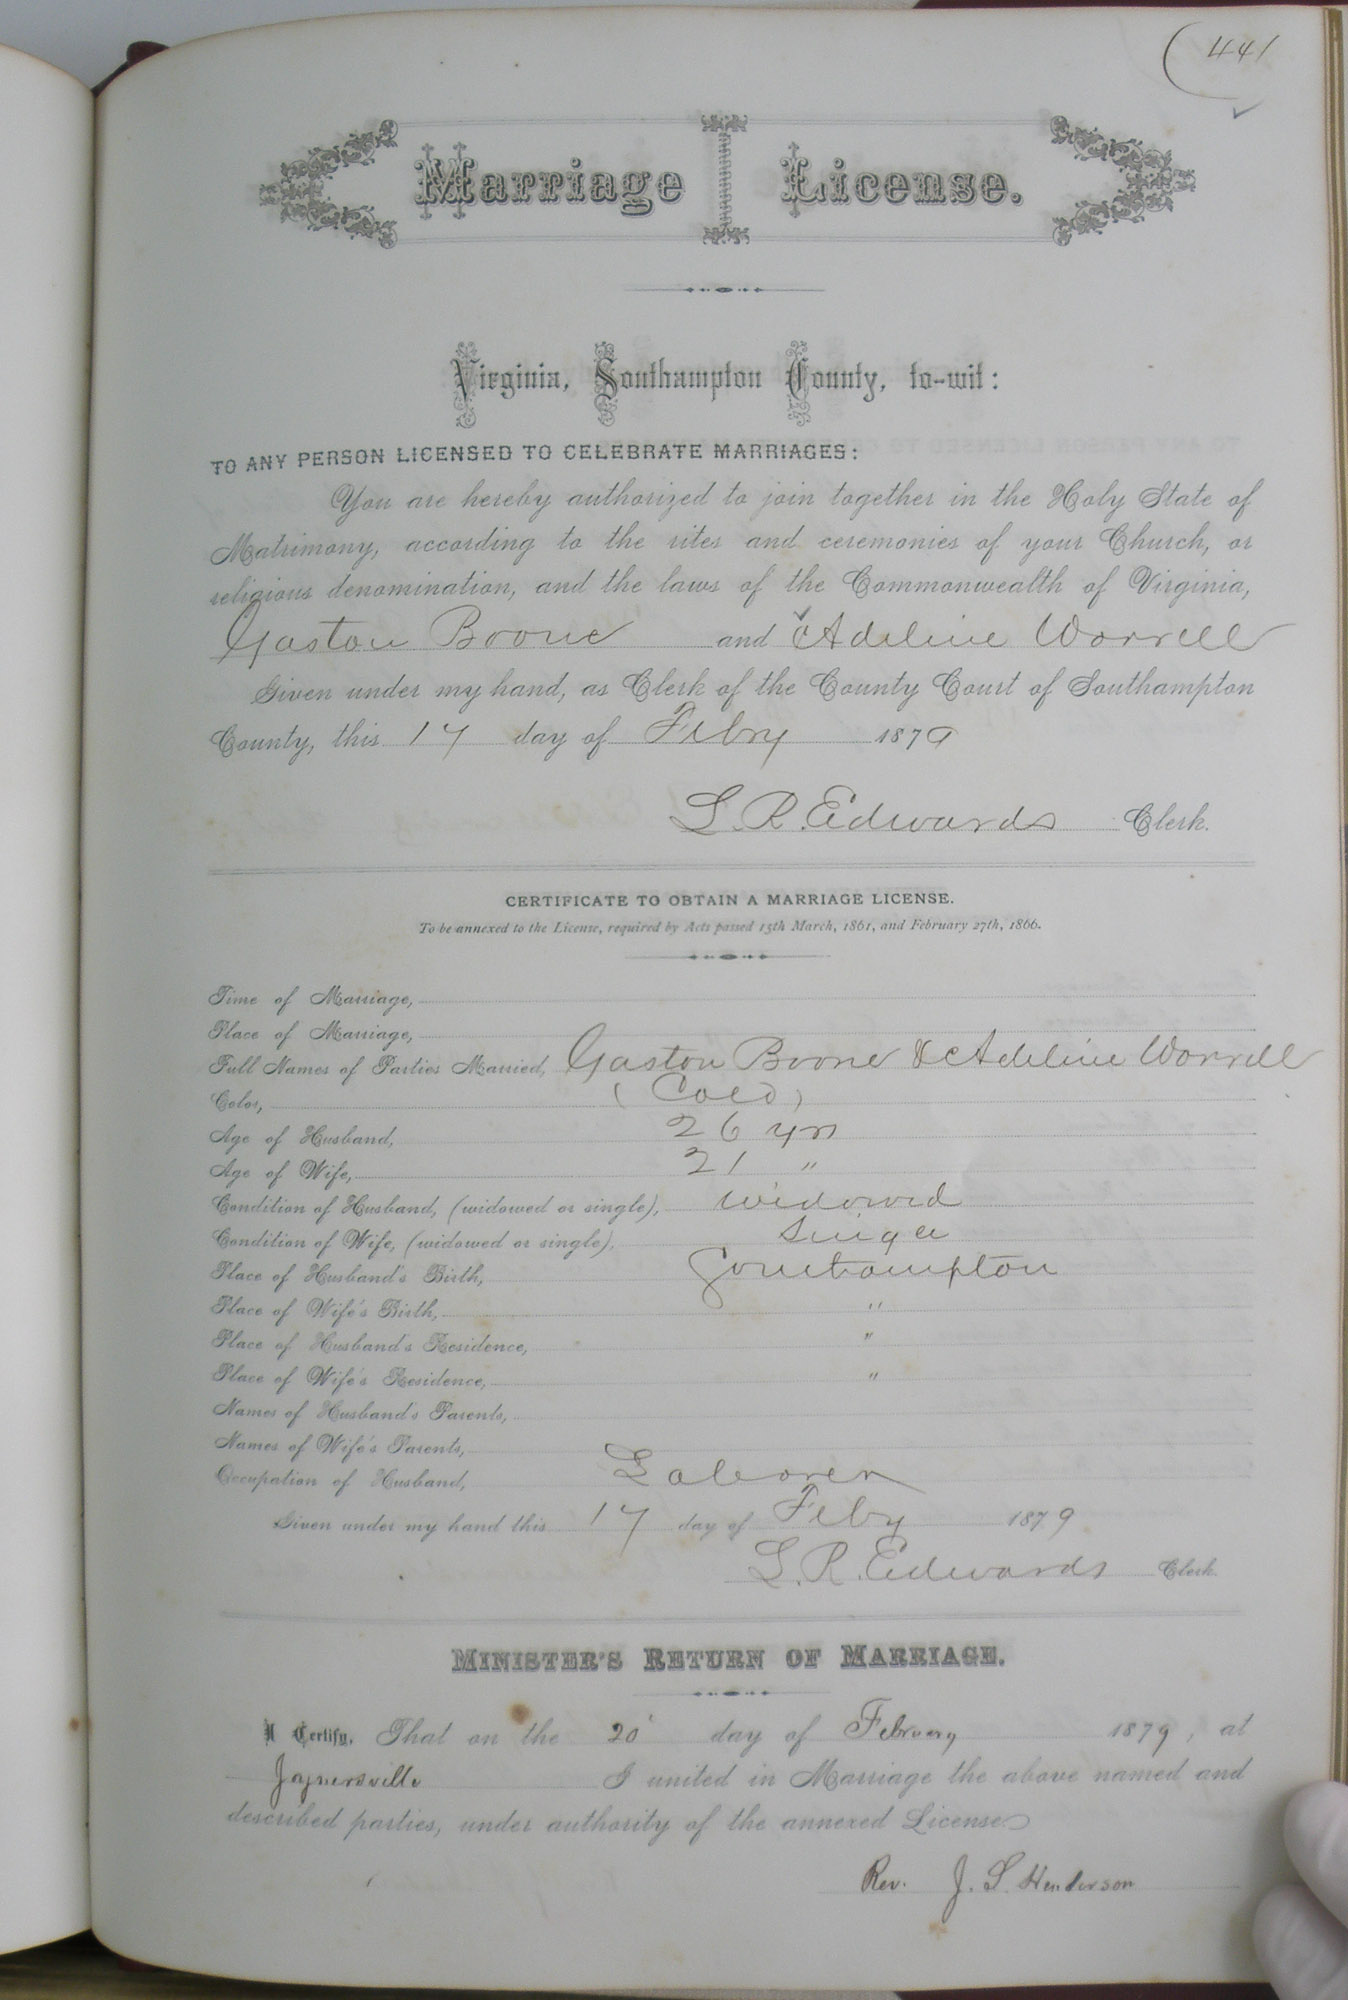 441
Marriage License.
Virginia, Southampton County, to-wit:
TO ANY PERSON LICENSED TO CELEBRATE MARRIAGES:
You are hereby authorized to join together in the Holy State of
Matrimony, according to the rites and ceremonies of your Church, or
religious denomination, and the laws of the Commonwealth of Virginia,
Gaston Boone and Adeline Worrell
Given under my hand, as Clerk of the County Court of Southampton
County, this 17 day of Feby 1879
L. R. Edwards Clerk.
CERTIFICATE TO OBTAIN A MARRIAGE LICENSE.
To be annexed to the License, required by Acts passed 15th March, 1861, and February 27th, 1866.
Time of Marriage,
Place of Marriage,
Full Names of Parties Married, Gaston Boone & Adeline Worrell
Color, (Cold)
Age of Husband, 26 yrs
Age of Wife, 21 "
Condition of Husband, (widowed or single), widowed
Condition of Wife, (widowed or single), Single
Place of Husband's Birth, Southampton
Place of Wife's Birth, "
Place of Husband's Residence, "
Place of Wife's Residence, "
Names of Husband's Parents,
Names of Wife's Parents,
Occupation of Husband, Laborer
Given under my hand this 17 day of Feby 1879
L. R. Edwards Clerk.
MINISTER'S RETURN OF MARRIAGE.
I Certify, That on the 20 day of February 1879, at
Joynersville I united in Marriage the above named and
described parties, under authority of the annexed License
Rev. J. S. Henderson